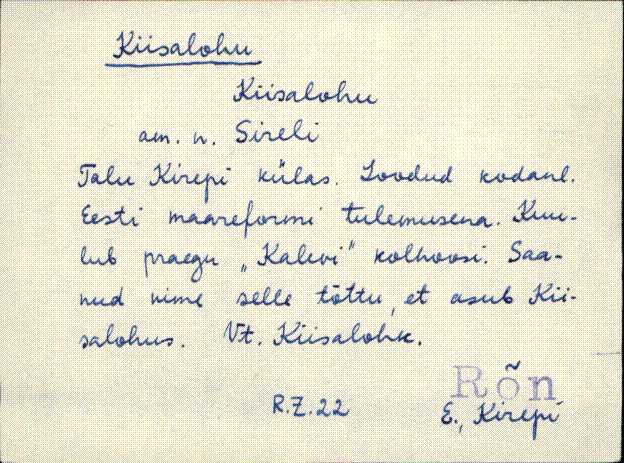 Kiisalohu
Kiisalohu
am. n. Sireli
Talu Kirepi külas. Loodud kodanl.
Eesti maareformi tulemusena. Kuu-
lub praegu „Kalevi" kolhoosi. Saa-
nud nime selle tõttu, et asub Kii-
salohus. Vt. Kiisalohk.
Rõn
R.Z.22 E., Kirepi